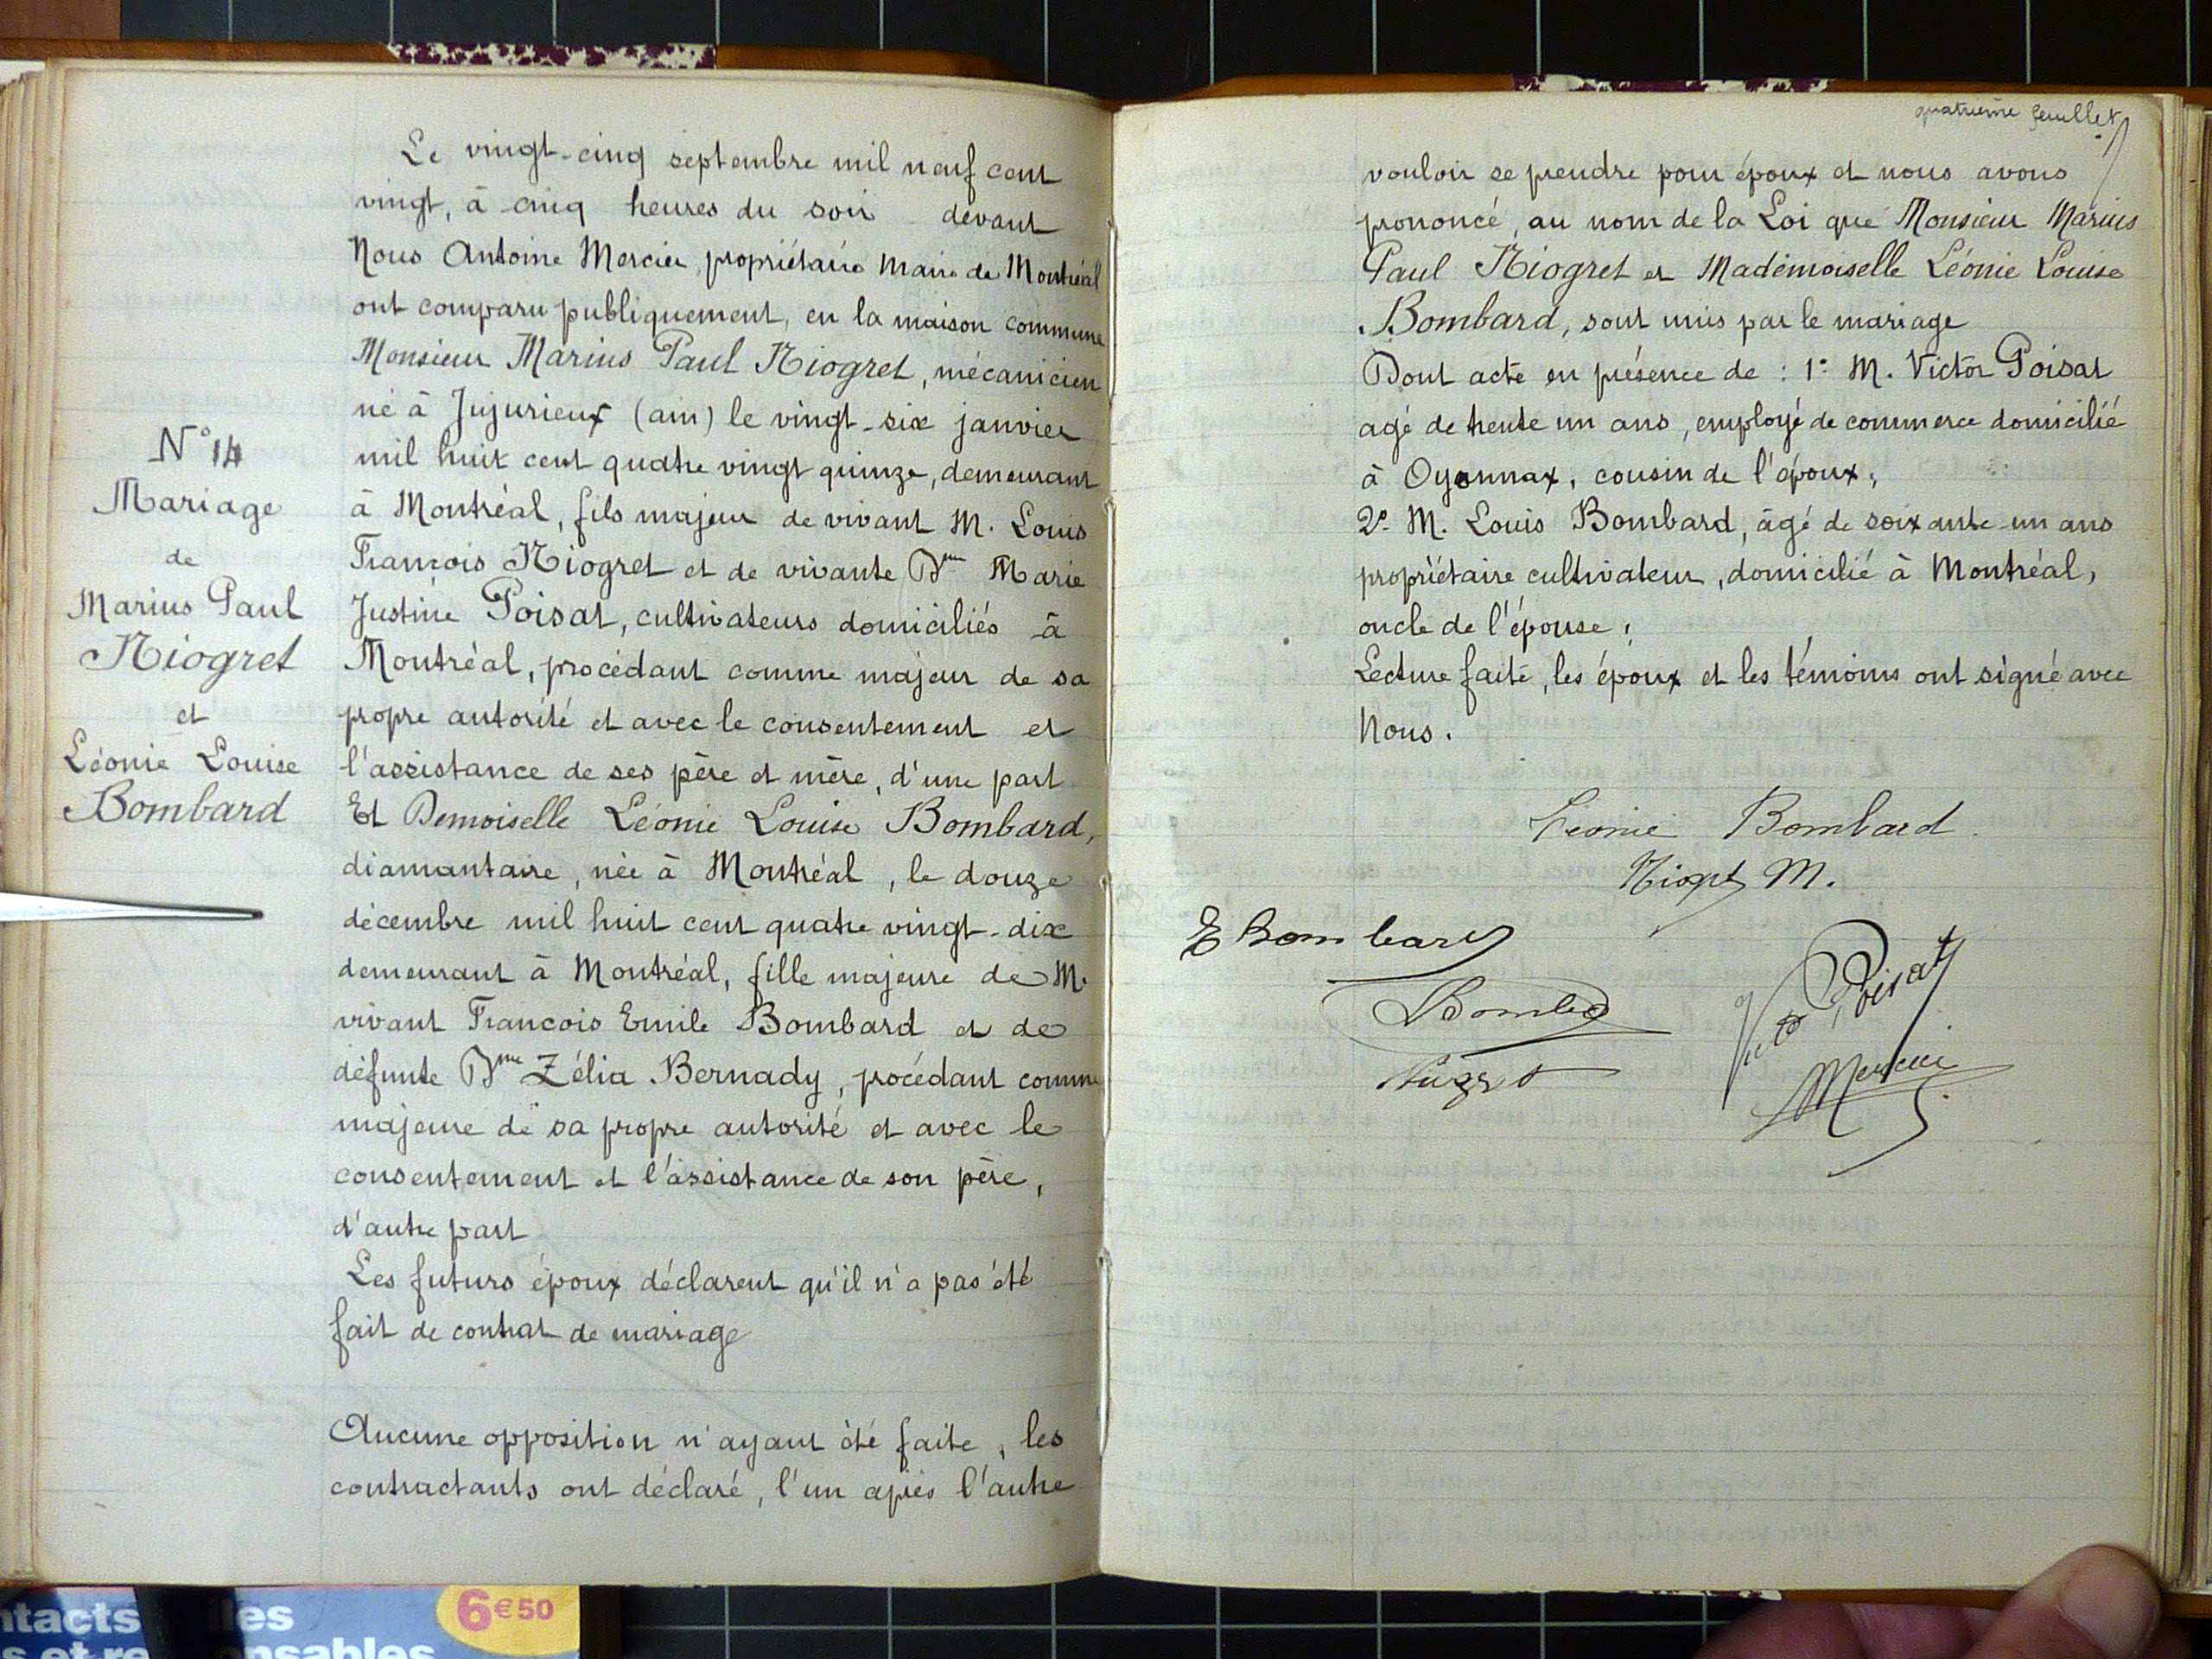 Le vingt-cinq septembre mil neuf cent
vingt, à cinq heures du soir devant
Nous Antoine Mercier, propriétaire Maire de Montréal
ont comparu publiquement, en la maison commune
Monsieur Marius Paul Niogret, mécanicien
né à Jujurieux (ain) le vingt-six janvier
mil huit cent quatre vingt quinze, demeurant
à Montréal, fils majeur de vivant M. Louis
François Niogret et de vivante Dme Marie
Justine Poisat, cultivateurs domiciliés à
Montréal, procédant comme majeur de sa
propre autorité et avec le consentement et
l'assistance de ses père et mère, d'une part
Et Demoiselle Léonie Louise Bombard,
diamantaire, née à Montréal, le douze
décembre mil huit cent quatre vingt-dix
demeurant à Montréal, fille majeure de M.
vivant François Emile Bombard et de
défunte Dme Zélia Bernady, procédant comme
majeure de sa propre autorité et avec le
consentement et l'assistance de son père,
d'autre part
Les futurs époux déclarent qu'il n'a pas été
fait de contrat de mariage
Aucune opposition n'ayant été faite, les
contractants ont déclaré, l'un après l'autre
N° 14
Mariage
de
Marius Paul
Niogret
et
Léonie Louise
Bombard
quatrième feuillet
vouloir se prendre pour époux et nous avons
prononcé, au nom de la Loi que Monsieur Marius
Paul Niogret et Mademoiselle Léonie Louise
Bombard, sont unis par le mariage
Dont acte en présence de : 1° M. Victor Poisat
agé de trente un ans, employé de commerce domicilié
à Oyonnax, cousin de l'époux,
2° M. Louis Bombard, âgé de soixante-un ans
propriétaire cultivateur, domicilié à Montréal,
oncle de l'épouse,
Lecture faite, les époux et les témoins ont signé avec
Nous.
Léonie Bombard
Niogret M.
E Bombard
LBombard
Vic Poisat
Niogret
Mercier
ntacts les
s et re nsables
6€50